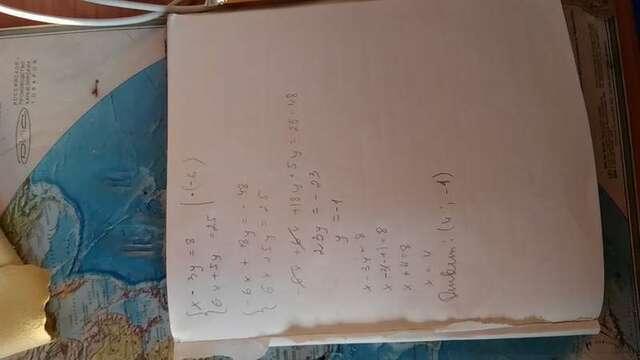 РОССИЙСКОЕ
ПРОИЗВОДСТВО
КАНЦЕЛЯРСКИХ
ТОВАРОВ
{ x - 3y = 8 | ·(-6)
{ 6x + 5y = 25
{ -6x + 18y = -48
{ 6x + 5y = 25
-6x + 6x + 18y + 5y = 25-48
23y = -23
y = -1
x - 3y = 8
x - 3(-1) = 8
x + 4 = 8
x = 4
Ответ: (4; -1)